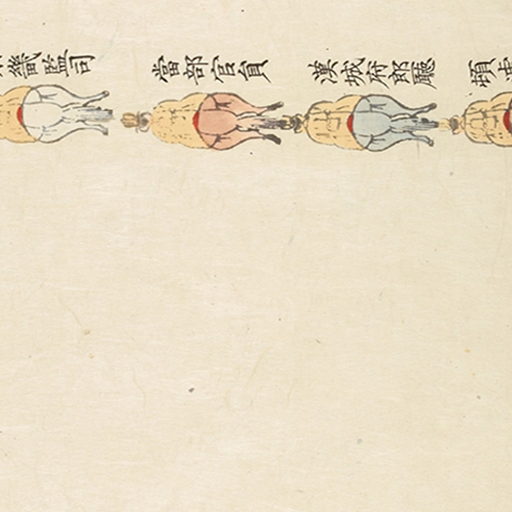 畿監司
當部官員
漢城府郎廳
頓